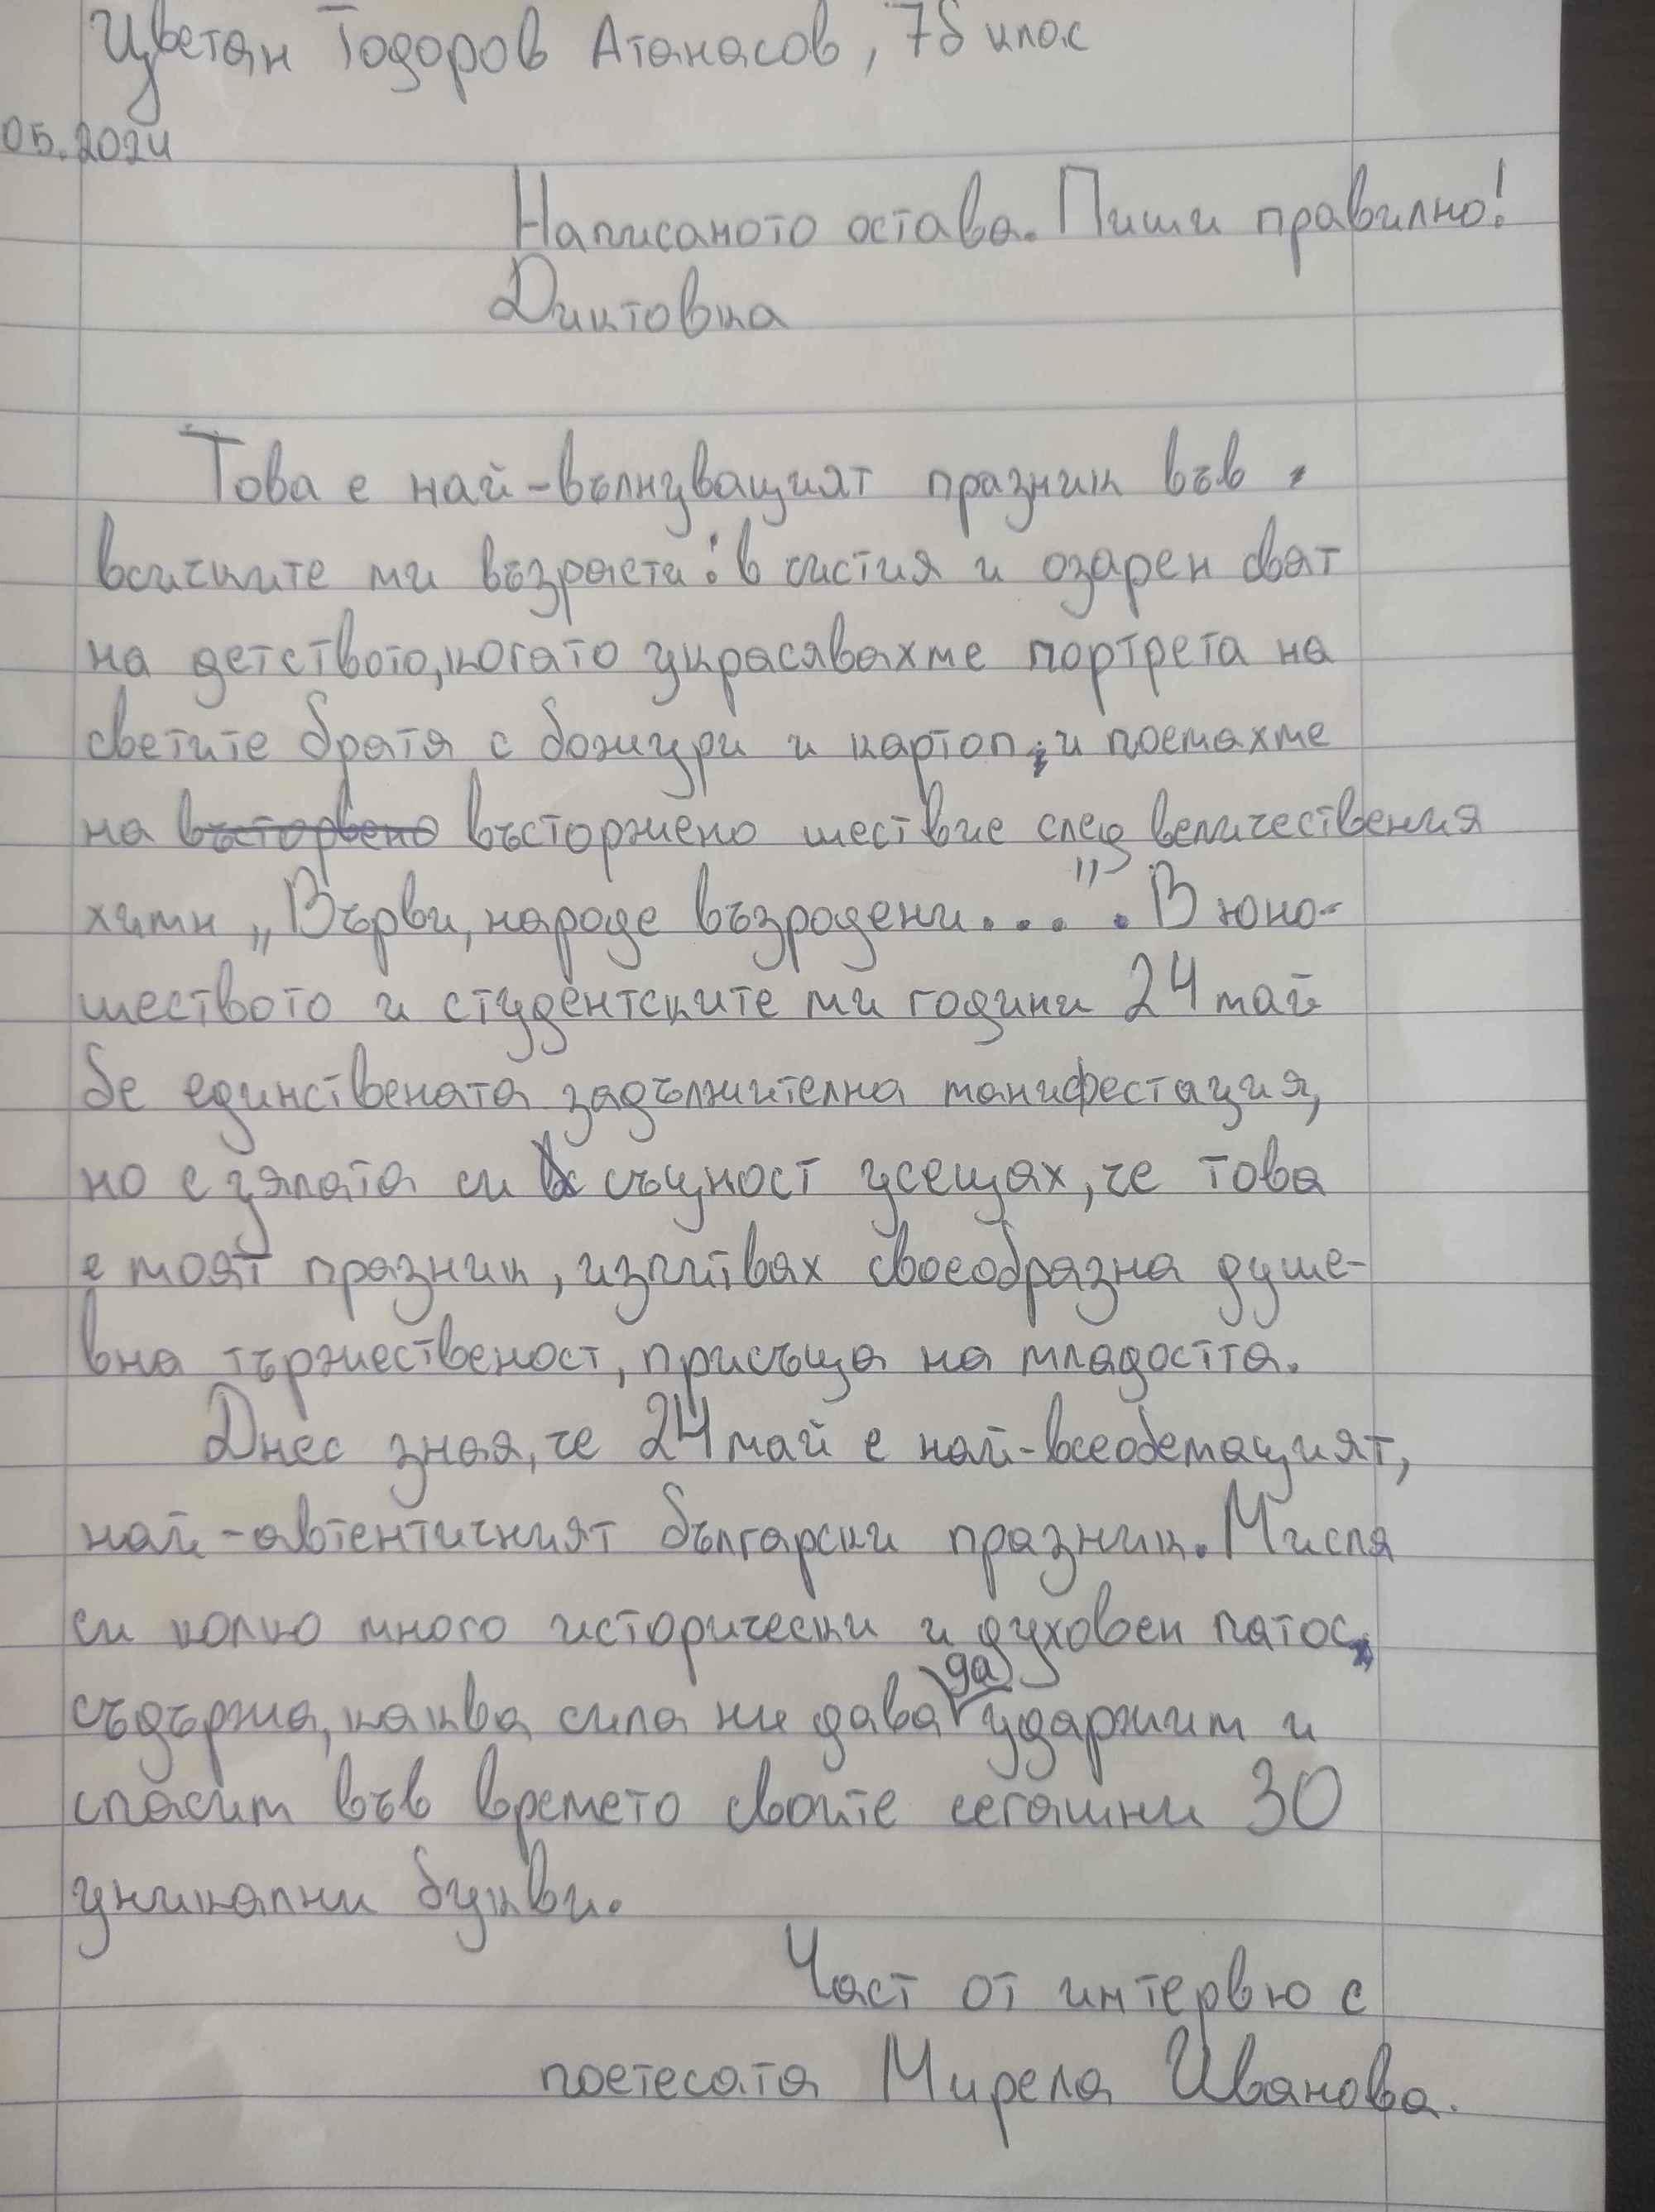 Цветан Тодоров Атанасов, 7б клас
05.2024
Написаното остава. Пиши правилно!
Диктовка
Това е най-вълнуващият празник във
всичките ми възрасти: в чистия и озарен свят
на детството, когато украсявахме портрета на
светите братя с божури и картоп, и поемахме
на въсторжено шествие след величествения
химн „Върви, народе възродени...". В юно-
шеството и студентските ми години 24 май
бе единствената задължителна манифестация,
но с цялата си същност усещах, че това
е моят празник, изпитвах своеобразна душе-
вна тържественост, присъща на младостта.
Днес зная, че 24 май е най-всеобемащият,
най-автентичният български празник. Мисля
си колко много исторически и духовен патос
съдържа, каква сила ни дава да ударжим и
спасим във времето своите сегашни 30
уникални букви.
Част от интервю с
поетесата Мирела Иванова.